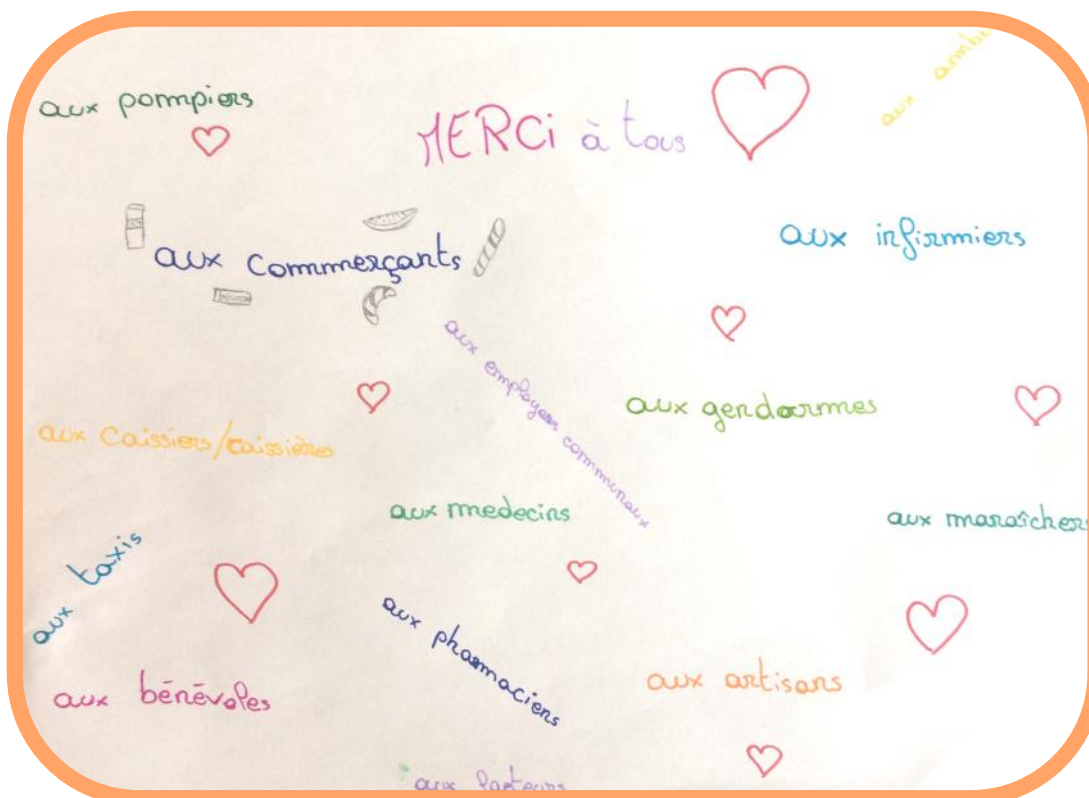 aux pompiers
MERCi à tous
aux
aux infirmiers
aux commerçants
aux employés communaux
aux gendarmes
aux caissiers/caissières
aux medecins
aux maraîchers
aux taxis
aux pharmaciens
aux bénévoles
aux artisans
aux facteurs